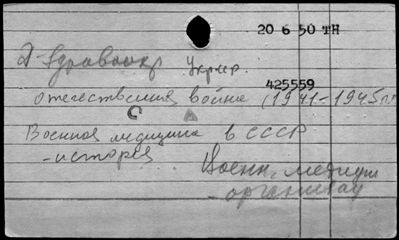 20 6 50 TH
Здравоохр Укр
425559
Отечественная война (1941-1945 гг
С А
Военная медицина в СССР
-история Воен. медиц
- организац